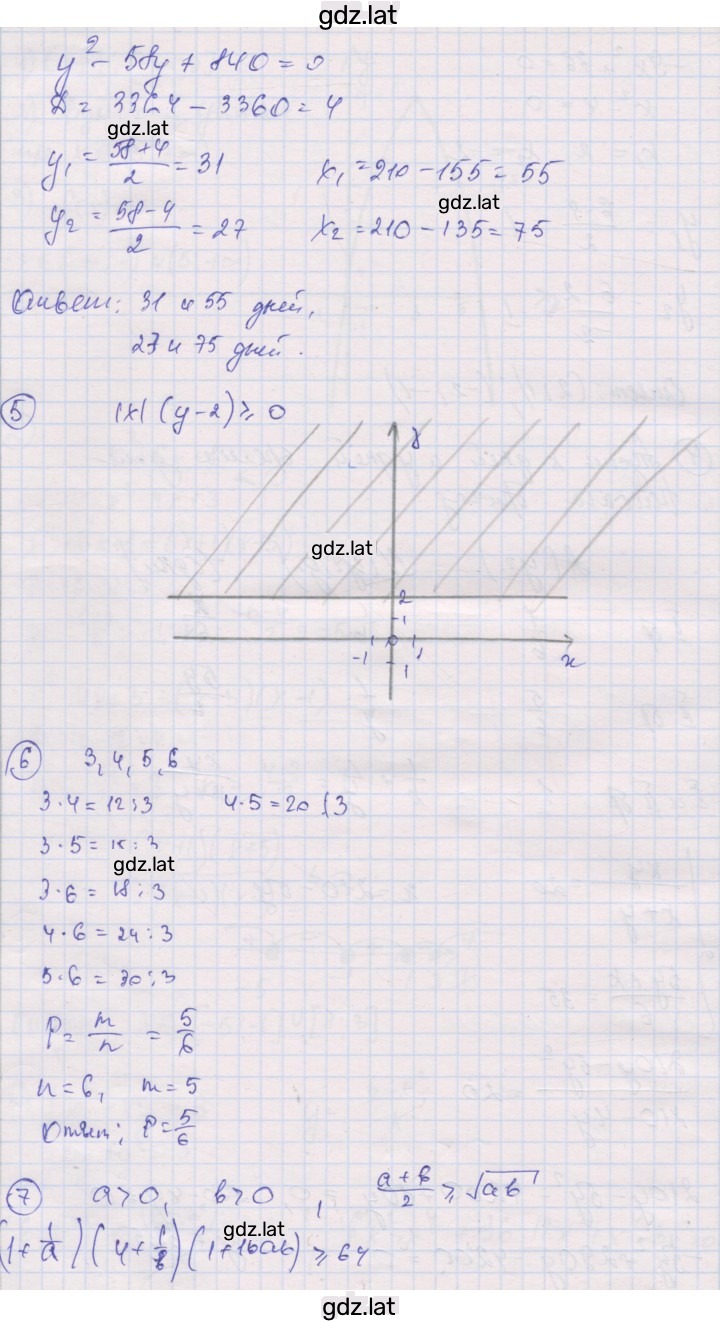 gdz.lat
y² - 58y + 840 = 0
D = 3364 - 3360 = 4
gdz.lat
y₁ = (58+4)/2 = 31 x₁ = 210 - 155 = 55
gdz.lat
y₂ = (58-4)/2 = 27 x₂ = 210 - 135 = 75
Ответ: 31 и 55 дней,
27 и 75 дней.
5 |x| (y-2) ⩾ 0
y
gdz.lat
2
1
-1 0 1
1
x
6 3, 4, 5, 6
3·4 = 12⋮3 4·5 = 20 ⋮̸ 3
3·5 = 15⋮3
gdz.lat
3·6 = 18⋮3
4·6 = 24⋮3
5·6 = 30⋮3
P = m/n = 5/6
n = 6, m = 5
Ответ: P = 5/6
7 a>0, b>0, (a+b)/2 ⩾ √ab
gdz.lat
(1+1/a)(4+1/b)(1+16ab) ⩾ 64
gdz.lat